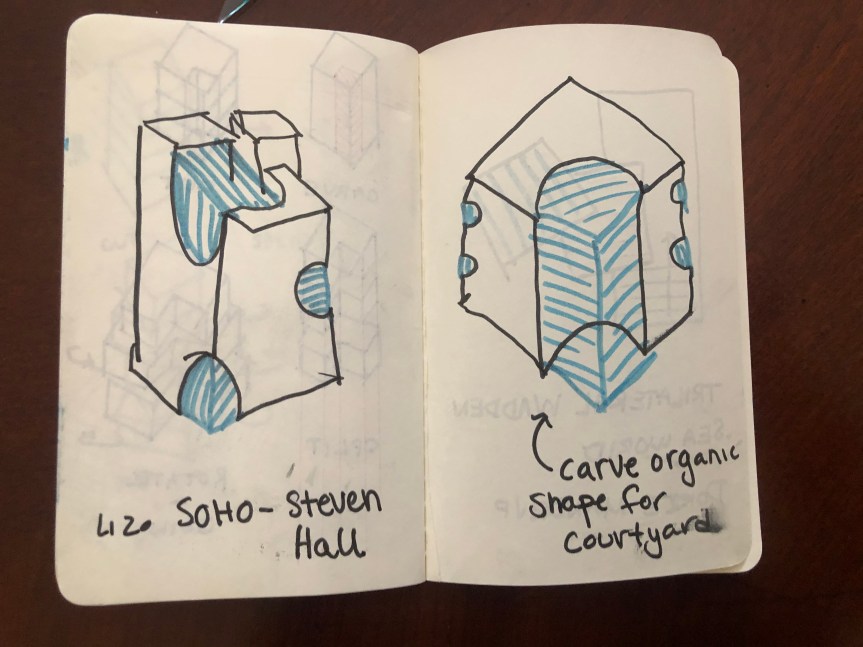 L120 SOHO - Steven
Hall
carve organic
shape for
courtyard